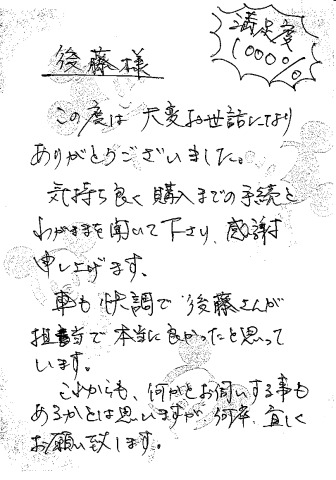 満足度
1000%
後藤様
この度は 大変お世話になり
ありがとうございました。
気持ち良く購入までの手続と
わがままを聞いて下さり、感謝
申し上げます、
車も快調で 後藤さんが
担当で本当に良かったと思って
います。
これからも、何かとお伺いする事も
あるかとは思いますが 何卒、宜しく
お願い致します。